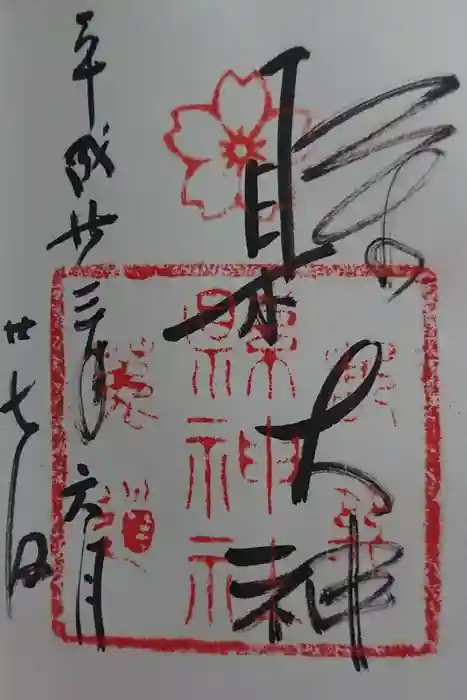 縣大神
縣神社
平成廿三年六月
廿七日